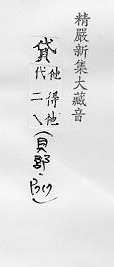 精嚴新集大藏音
貸 他代 得二 他
(貝部